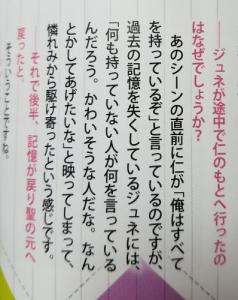 ジュネが途中で仁のもとへ行ったの
はなぜでしょうか？
あのシーンの直前に仁が「俺はすべて
を持っているぞ」と言っているのですが、
過去の記憶を失くしているジュネには、
「何も持っていない人が何を言っている
んだろう。かわいそうな人だな。なん
とかしてあげたいな」と映ってしまって、
憐れみから駆け寄ったという感じです。
それで後半、記憶が戻り聖の元へ
戻ったと。
そういうことですね。